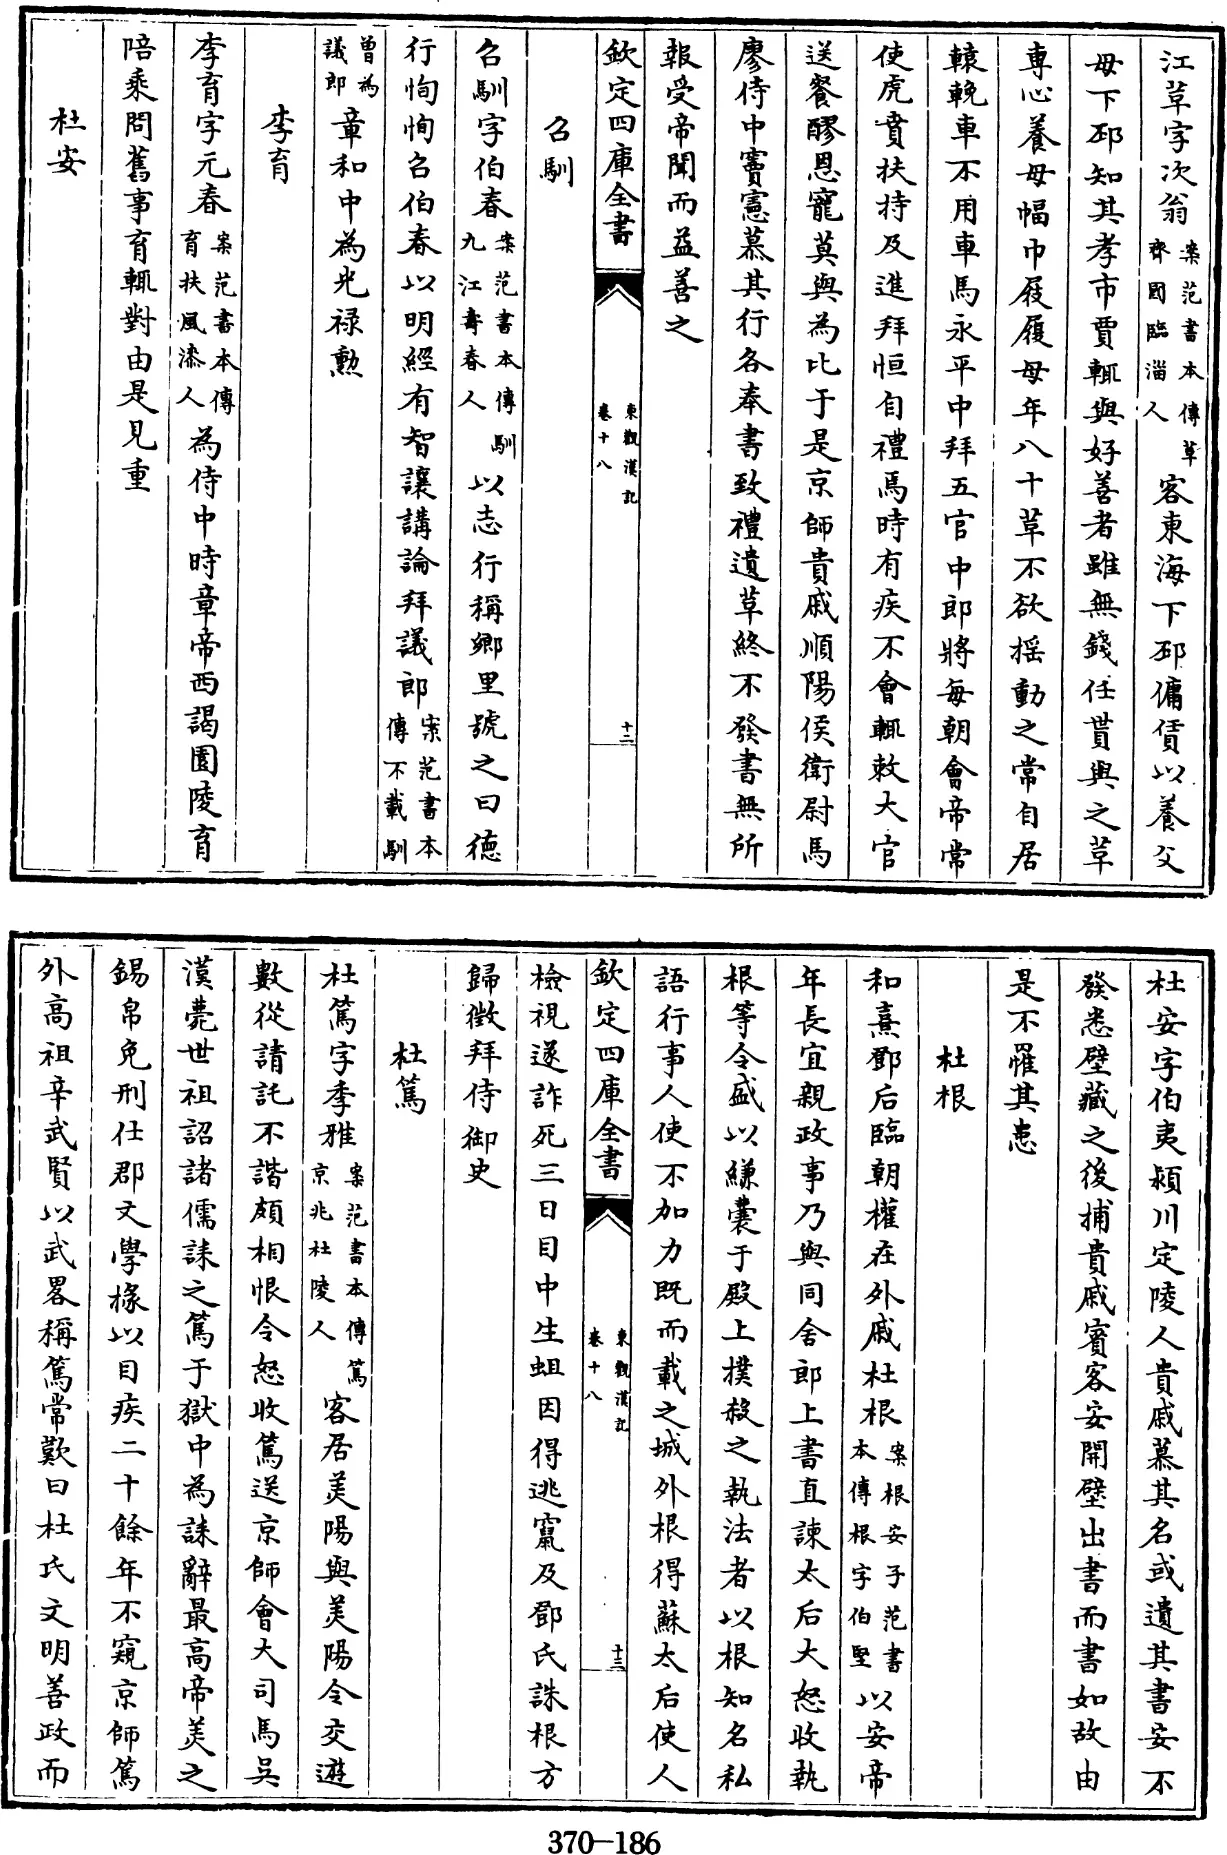 江草字次翁案范書本傳草齊國臨淄人客東海下邳傭賃以養父
母下邳知其孝市賈輒與好善者雖無錢任貰與之草
專心養母幅巾屐履母年八十草不欲搖動之常自居
轅輓車不用車馬永平中拜五官中郎將每朝會帝常
使虎賁扶持及進拜恒自禮焉時有疾不會輒敕大官
送餐醪恩寵莫與為比于是京師貴戚順陽侯衛尉馬
廖侍中竇憲慕其行各奉書致禮遺草終不發書無所
報受帝聞而益善之
欽定四庫全書 東觀漢記卷十八 十二
召馴
召馴字伯春案范書本傳馴九江壽春人以志行稱鄉里號之曰德
行恂恂召伯春以明經有智讓講論拜議郎案范書本傳不載馴
曾為議郎章和中為光禄勲
李育
李育字元春案范書本傳育扶風漆人為侍中時章帝西謁園陵育
陪乘問舊事育輒對由是見重
杜安
杜安字伯夷潁川定陵人貴戚慕其名或遺其書安不
發悉壁藏之後捕貴戚賓客安開壁出書而書如故由
是不罹其患
杜根
和熹鄧后臨朝權在外戚杜根案根安子范書本傳根字伯堅以安帝
年長宜親政事乃與同舍郎上書直諫太后大怒收執
根等令盛以縑囊于殿上撲殺之執法者以根知名私
語行事人使不加力既而載之城外根得蘇太后使人
欽定四庫全書 東觀漢記卷十八 十三
檢視遂詐死三日目中生蛆因得逃竄及鄧氏誅根方
歸徴拜侍御史
杜篤
杜篤字季雅案范書本傳篤京兆杜陵人客居美陽與美陽令交遊
數從請託不諧頗相恨令怒收篤送京師會大司馬吳
漢薨世祖詔諸儒誄之篤于獄中為誄辭最高帝美之
錫帛免刑仕郡文學掾以目疾二十餘年不窺京師篤
外高祖辛武賢以武畧稱篤常歎曰杜氏文明善政而
370-186